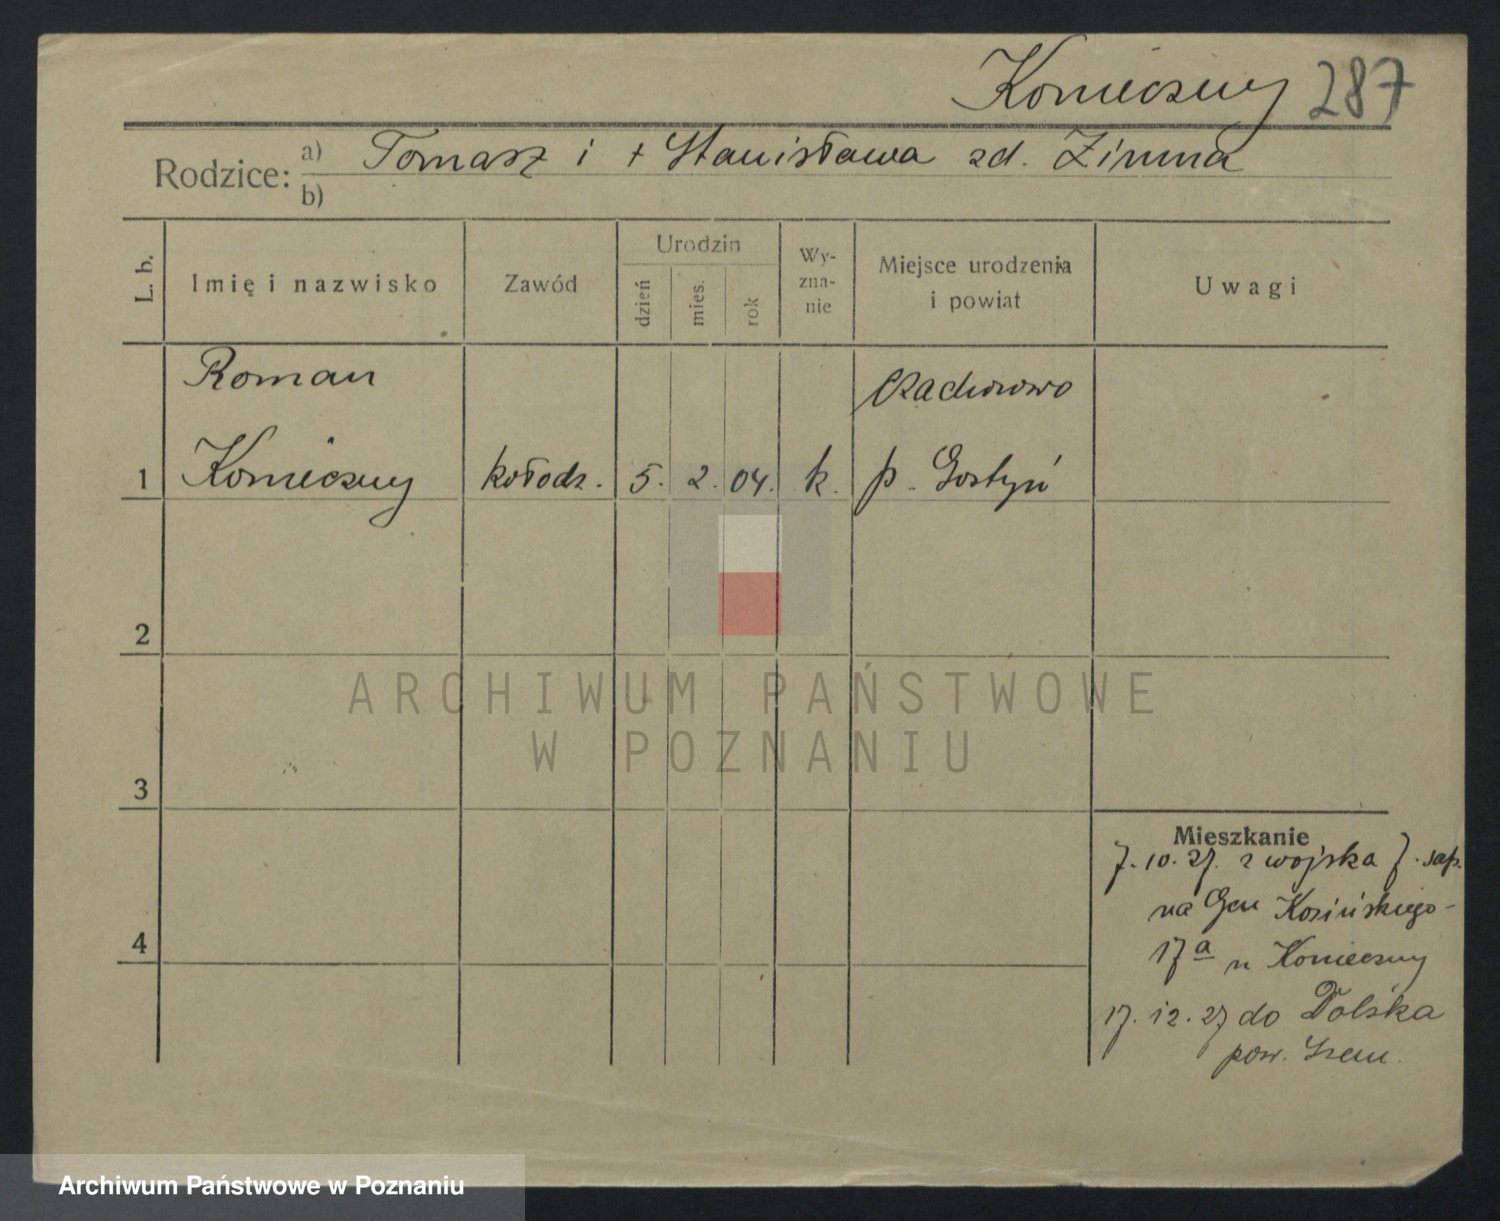 Konieczny 287
Rodzice: a) Tomasz i + Stanisława zd. Zimna
b)
L. b. Imię i nazwisko Zawód Urodzin dzień mies. rok Wy-zna-nie Miejsce urodzenia i powiat Uwagi
Roman Czachorowo
1 Konieczny kołodz. 5. 2. 04. k. p. Gostyń
2
3
4
Mieszkanie
7. 10. 27. z wojska 7. sap.
na Gen Kosińskiego-
17a u Konieczny
17. 12. 27 do Dolska
pow. Śrem.
ARCHIWUM PAŃSTWOWE
W POZNANIU
Archiwum Państwowe w Poznaniu